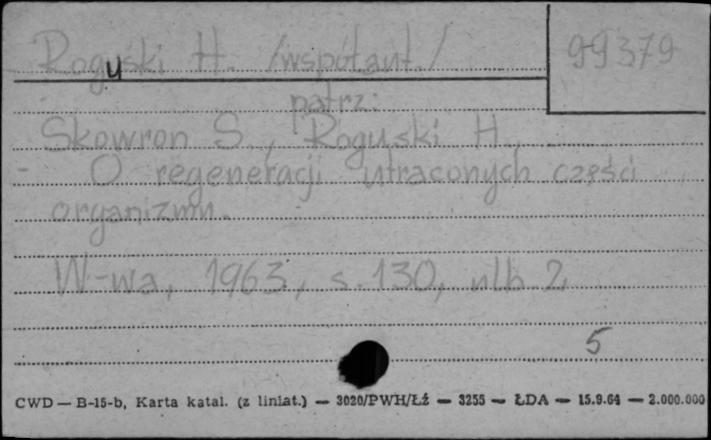 Roguski H. /współaut./ 99379
patrz:
Skowron S., Roguski H.,
- O regeneracji utraconych części
organizmu.
W-wa, 1963, s. 130, nlb. 2,
5
CWD — B-15-b, Karta katal. (z liniat.) — 3020/PWH/Łź — 3255 — ŁDA — 15.9.64 — 2.000.000